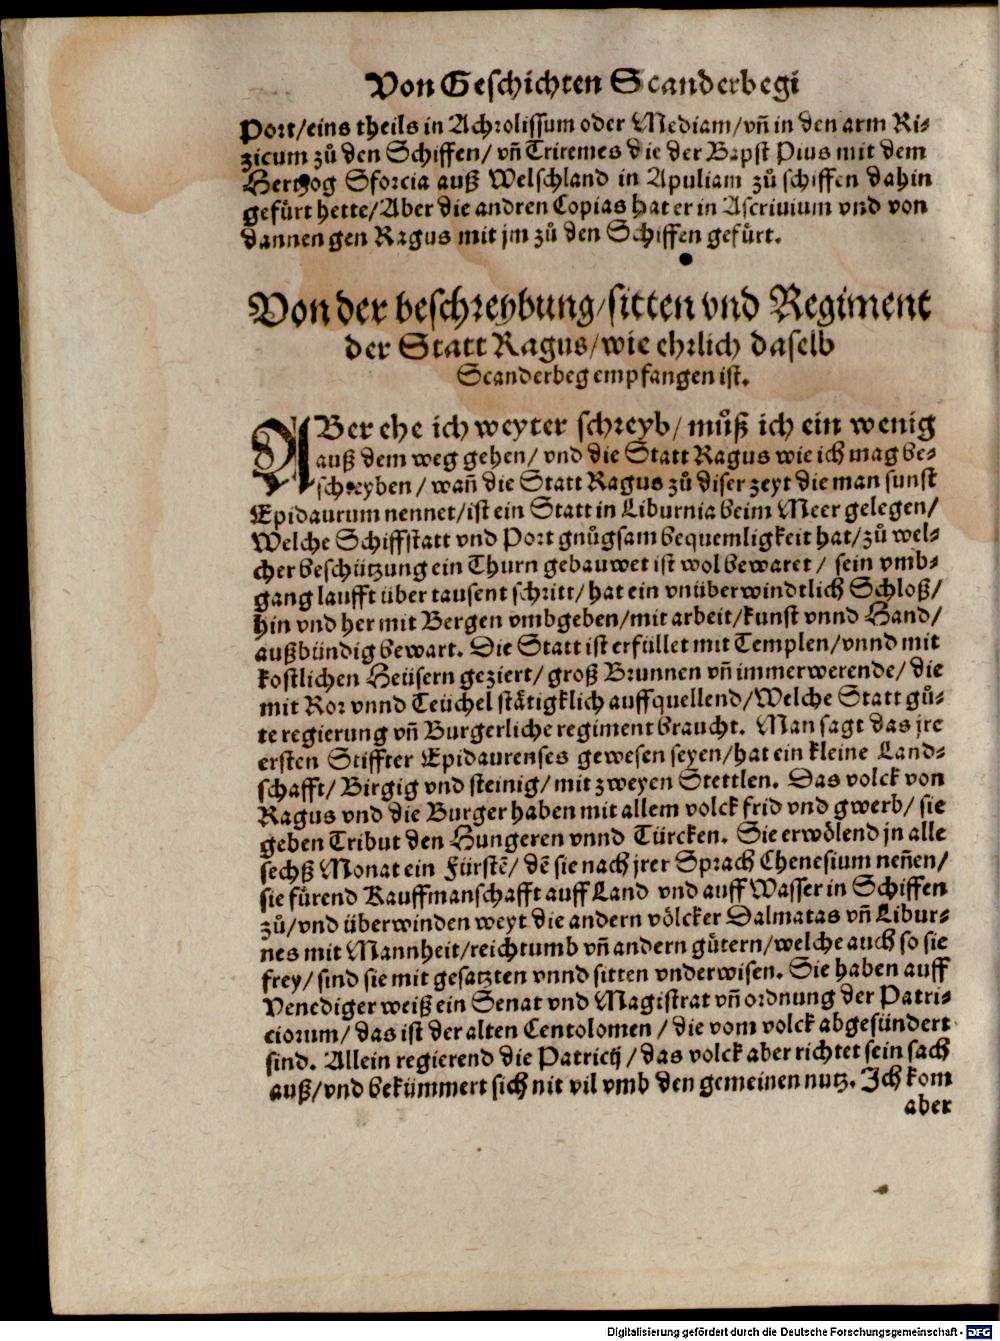 Von Geschichten Scanderbegi
Port/eins theils in Achrolissum oder Mediam/vñ in den arm Ri-
zicum zů den Schiffen/ vñ Triremes die der Bapst Pius mit dem
Hertzog Sforcia auß Welschland in Apuliam zů schiffen dahin
gefürt hette/Aber die andren Copias hat er in Ascriuium vnd von
dannen gen Ragus mit jm zů den Schiffen gefürt.
Von der beschreybung/sitten vnd Regiment
der Statt Ragus/wie ehrlich daselb
Scanderbeg empfangen ist.
ABer ehe ich weyter schreyb/ můß ich ein wenig
auß dem weg gehen/ vnd die Statt Ragus wie ich mag be-
schreyben/ wañ die Statt Ragus zů diser zeyt die man sunst
Epidaurum nennet/ist ein Statt in Liburnia beim Meer gelegen/
Welche Schiffstatt vnd Port gnůgsam bequemligkeit hat/zů wel-
cher beschützung ein Thurn gebauwet ist wol bewaret/ sein vmb-
gang laufft über tausent schritt/ hat ein vnüberwindtlich Schloß/
hin vnd her mit Bergen vmbgeben/mit arbeit/kunst vnnd Hand/
außbündig bewart. Die Statt ist erfüllet mit Templen/vnnd mit
kostlichen Heüsern geziert/ groß Brunnen vñ immerwerende/ die
mit Ror vnnd Teüchel stätigklich auffquellend/Welche Statt gů-
te regierung vñ Burgerliche regiment braucht. Man sagt das jre
ersten Stiffter Epidaurenses gewesen seyen/hat ein kleine Land-
schafft/ Birgig vnd steinig/ mit zweyen Stettlen. Das volck von
Ragus vnd die Burger haben mit allem volck frid vnd gwerb/ sie
geben Tribut den Hungeren vnnd Türcken. Sie erwölend jn alle
sechß Monat ein Fürstẽ/ dẽ sie nach jrer Sprach Chenesium neñen/
sie fürend Kauffmanschafft auff Land vnd auff Wasser in Schiffen
zů/vnd überwinden weyt die andern völcker Dalmatas vñ Libur-
nes mit Mannheit/reichtumb vñ andern gütern/welche auch so sie
frey/ sind sie mit gesatzten vnnd sitten vnderwisen. Sie haben auff
Venediger weiß ein Senat vnd Magistrat vñ ordnung der Patri-
ciorum/ das ist der alten Centolomen/ die vom volck abgesündert
sind. Allein regierend die Patricij/ das volck aber richtet sein sach
auß/vnd bekümmert sich nit vil vmb den gemeinen nutz. Ich kom
aber
Digitalisierung gefördert durch die Deutsche Forschungsgemeinschaft - DFG